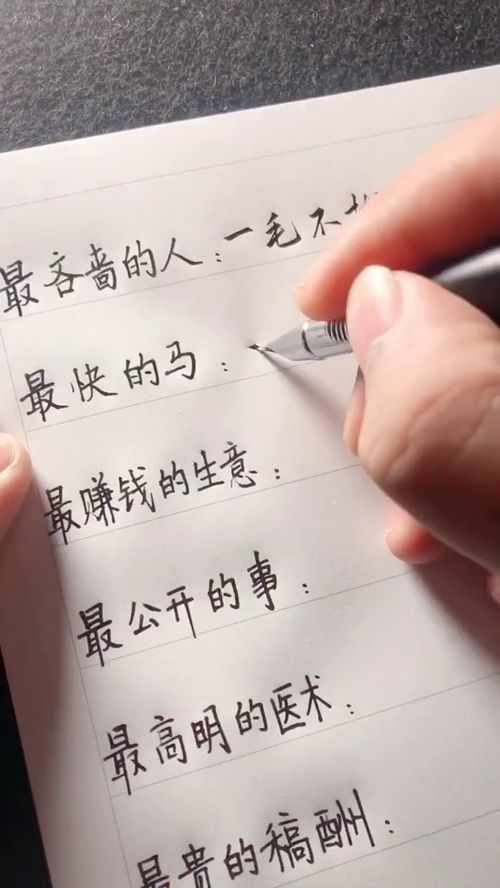 最吝啬的人：一毛不
最快的马：
最赚钱的生意：
最公开的事：
最高明的医术：
最贵的稿酬：